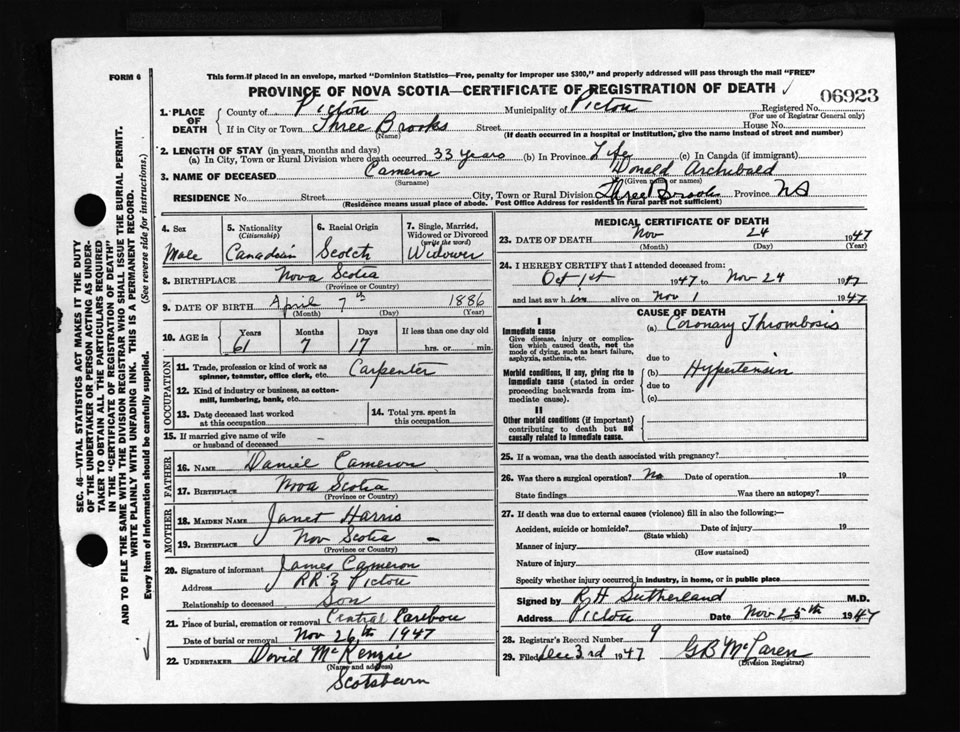 FORM 6
This form if placed in an envelope, marked "Dominion Statistics—Free, penalty for improper use $300," and properly addressed will pass through the mail "FREE"
PROVINCE OF NOVA SCOTIA—CERTIFICATE OF REGISTRATION OF DEATH
06923
1. PLACE OF DEATH County of Pictou Municipality of Pictou Registered No.
(For use of Registrar General only)
If in City or Town Three Brooks Street House No.
(Name) (If death occurred in a hospital or institution, give the name instead of street and number)
2. LENGTH OF STAY (in years, months and days)
(a) In City, Town or Rural Division where death occurred 33 years (b) In Province Life (c) In Canada (if immigrant)
3. NAME OF DECEASED Cameron Donald Archibald
(Surname) (Given name or names)
RESIDENCE No. Street City, Town or Rural Division Three Brooks Province NS
(Residence means usual place of abode. Post Office Address for residents in rural parts not sufficient)
4. Sex 5. Nationality (Citizenship) 6. Racial Origin 7. Single, Married, Widowed or Divorced (write the word)
Male Canadian Scotch Widower
8. BIRTHPLACE Nova Scotia
(Province or Country)
9. DATE OF BIRTH April 7th 1886
(Month) (Day) (Year)
10. AGE in Years Months Days If less than one day old
61 7 17 hrs. or min.
OCCUPATION
11. Trade, profession or kind of work as spinner, teamster, office clerk, etc. Carpenter
12. Kind of industry or business, as cotton-mill, lumbering, bank, etc.
13. Date deceased last worked at this occupation
14. Total yrs. spent in this occupation
15. If married give name of wife or husband of deceased -
FATHER
16. NAME Daniel Cameron
17. BIRTHPLACE Nova Scotia
(Province or Country)
MOTHER
18. MAIDEN NAME Janet Harris
19. BIRTHPLACE Nov Scotia -
(Province or Country)
20. Signature of informant James Cameron
Address RR 3 Pictou
Relationship to deceased Son
21. Place of burial, cremation or removal Central Caribou
Date of burial or removal Nov 26th 1947
22. UNDERTAKER David McKenzie
(Name and address)
Scotsburn
MEDICAL CERTIFICATE OF DEATH
23. DATE OF DEATH Nov 24 1947
(Month) (Day) (Year)
24. I HEREBY CERTIFY that I attended deceased from:
Oct 1st 1947 to Nov 24 1947
and last saw h im alive on Nov 1 1947
CAUSE OF DEATH
I
Immediate cause
Give disease, injury or complication which caused death, not the mode of dying, such as heart failure, asphyxia, asthenia, etc.
(a) Coronary Thrombosis
due to
Morbid conditions, if any, giving rise to immediate cause (stated in order proceeding backwards from immediate cause).
(b) Hypertension
due to
(c)
II
Other morbid conditions (if important) contributing to death but not causally related to immediate cause.
25. If a woman, was the death associated with pregnancy?
26. Was there a surgical operation? No Date of operation 19
State findings Was there an autopsy?
27. If death was due to external causes (violence) fill in also the following:—
Accident, suicide or homicide? Date of injury 19
(State which)
Manner of injury
(How sustained)
Nature of injury
Specify whether injury occurred in industry, in home, or in public place
Signed by R H Sutherland M.D.
Address Pictou Date Nov 25th 1947
28. Registrar's Record Number 9
29. Filed Dec 3rd 1947 GB McLaren
(Division Registrar)
SEC. 46—VITAL STATISTICS ACT MAKES IT THE DUTY
OF THE UNDERTAKER OR PERSON ACTING AS UNDER-
TAKER TO OBTAIN ALL THE PARTICULARS REQUIRED
IN THE "CERTIFICATE OF REGISTRATION OF DEATH"
AND TO FILE THE SAME WITH THE DIVISION REGISTRAR WHO SHALL ISSUE THE BURIAL PERMIT.
WRITE PLAINLY WITH UNFADING INK. THIS IS A PERMANENT RECORD.
Every item of information should be carefully supplied. (See reverse side for instructions.)